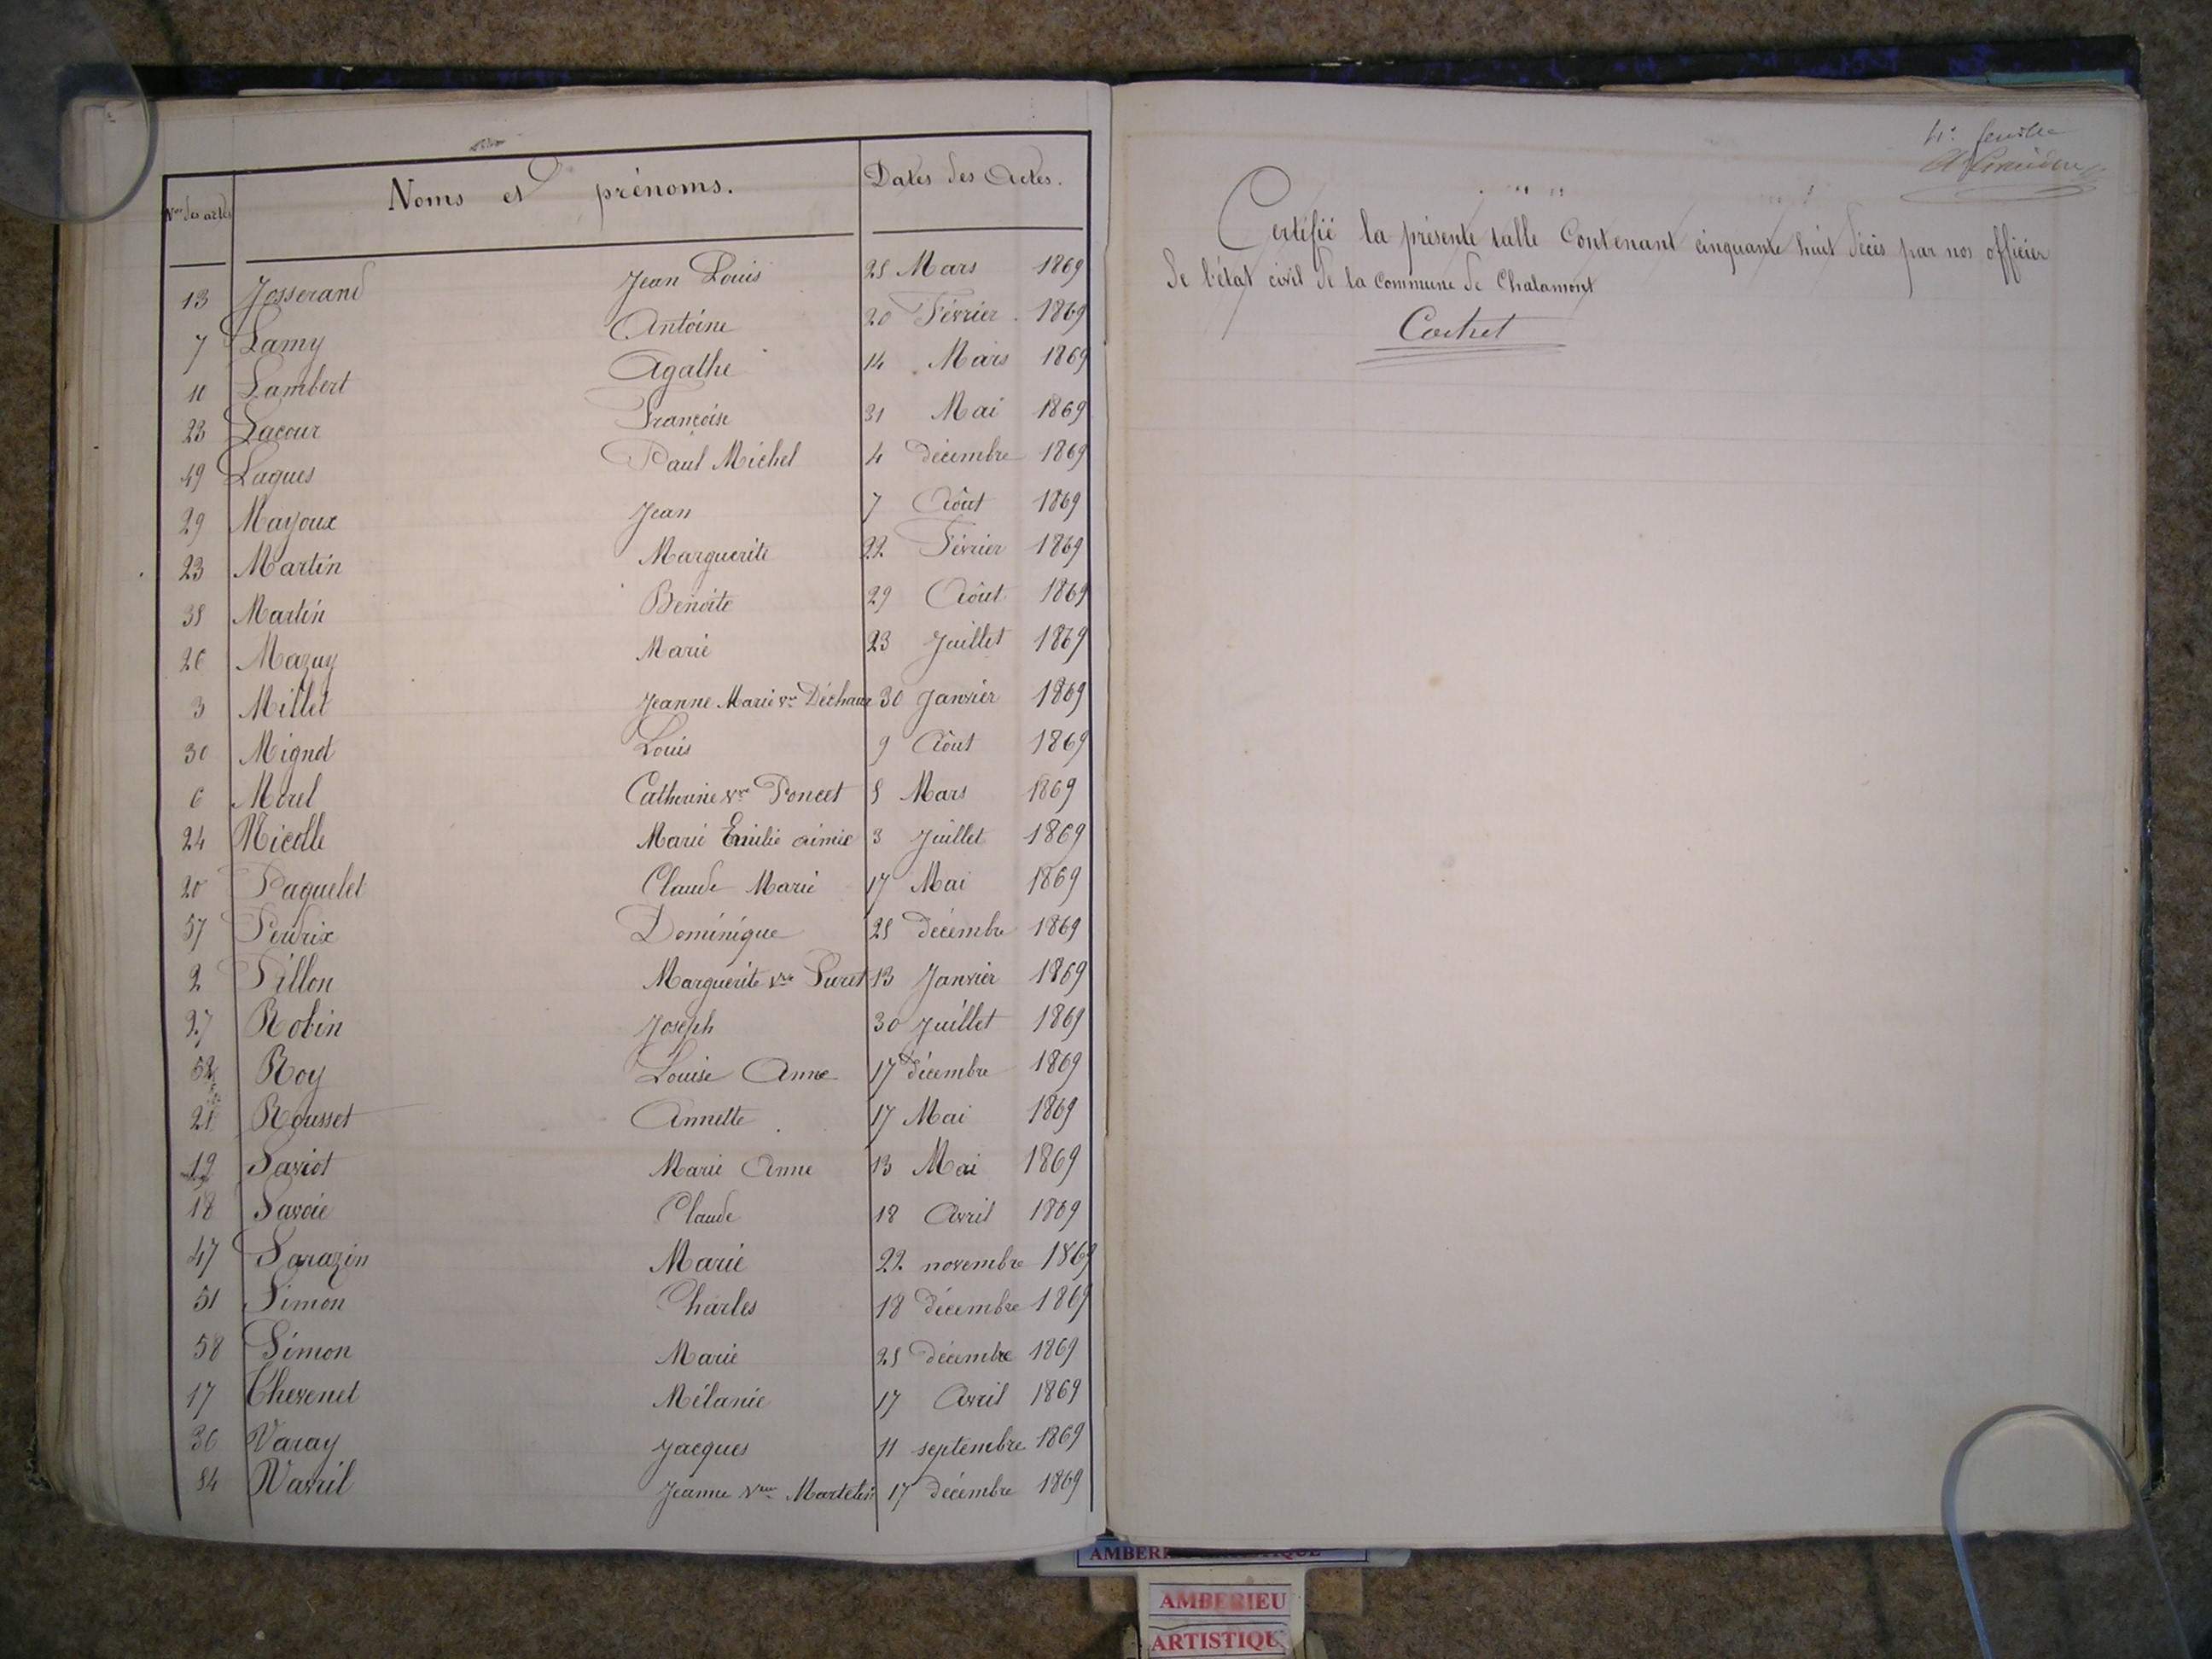 Nos des actes Noms et prénoms. Dates des Actes.
13 Josserand Jean Louis 25 Mars 1869
7 Lamy Antoine 20 Février 1869
10 Lambert Agathe 14 Mars 1869
23 Lacour Françoise 31 Mai 1869
49 Laques Paul Michel 4 décembre 1869
29 Mayoux Jean 7 Aôut 1869
23 Martin Marguerite 22 Février 1869
35 Martin Benoite 29 Aôut 1869
26 Mazuy Marie 23 Juillet 1869
3 Millet Jeanne Marie vve Déchaux 30 Janvier 1869
30 Mignot Louis 9 Aôut 1869
6 Morel Catherine vve Poncet 8 Mars 1869
24 Nicolle Marie Emilie aimée 3 Juillet 1869
20 Paquelet Claude Marie 17 Mai 1869
57 Perdrix Dominique 25 décembre 1869
2 Pillon Marguerite vve 13 Janvier 1869
27 Robin Joseph 30 Juillet 1869
52 Roy Louise Anne 17 décembre 1869
21 Rousset Annette 17 Mai 1869
19 Saviot Marie Anne 13 Mai 1869
18 Savoie Claude 18 Avril 1869
47 Sarazin Marie 22 novembre 1869
51 Simon Charles 18 décembre 1869
58 Simon Marie 25 décembre 1869
17 Thevenet Mélanie 17 Avril 1869
36 Varay Jacques 11 septembre 1869
54 Vavril Jeanne vve Martelin 17 décembre 1869
4e feuille
Certifié la présente table Contenant cinquante huit décès par nos officier
de l'état civil de la Commune de Chalamont
Cochet
AMBERIEU
ARTISTIQU